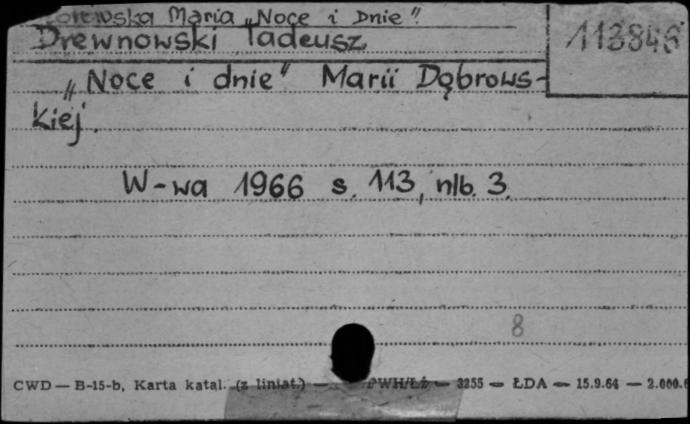 Maria „Noce i Dnie"
Drewnowski Tadeusz
113846
„Noce i dnie" Marii Dąbrows-
kiej.
W-wa 1966 s. 113, nlb. 3.
8
CWD — B-15-b, Karta katal. (z liniat.) — PWH/Łż — 3255 — ŁDA — 15.9.64 — 2.000.